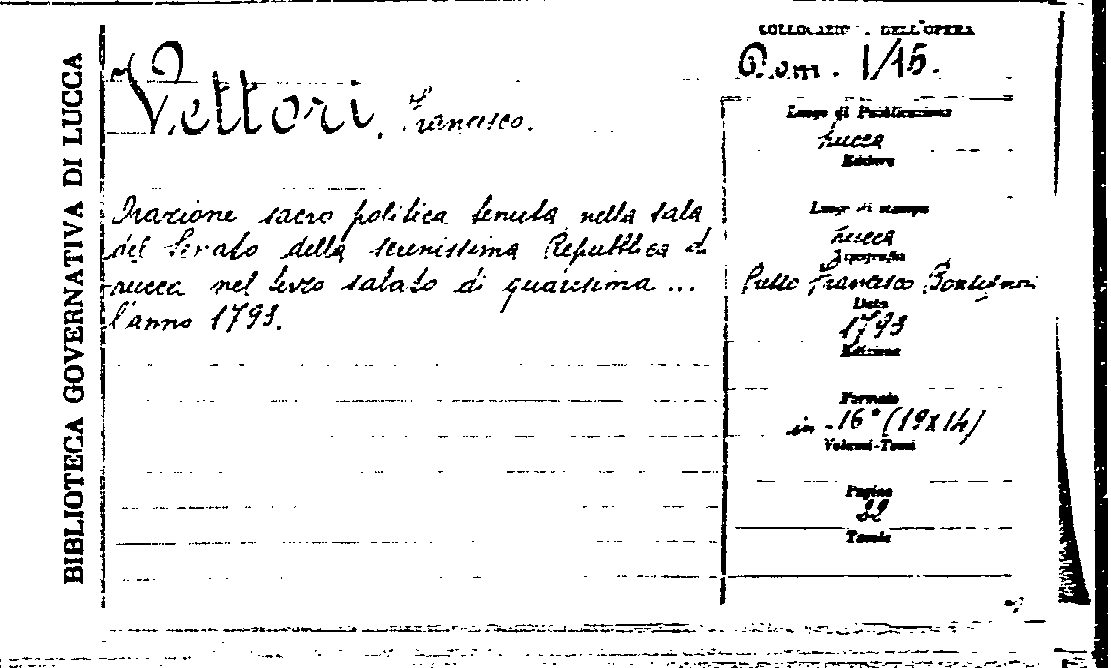 BIBLIOTECA GOVERNATIVA DI LUCCA
COLLOCAZIONE DELL'OPERA
1/15.
Vettori, Francesco.
Orazione sacro politica tenuta nella sala
del Senato della serenissima Repubblica di
Lucca nel terzo sabato di quaresima ...
l'anno 1793.
Luogo di Pubblicazione
Lucca
Editore
Luogo di stampa
Lucca
Tipografia
Francesco Bonsignori
Data
1793
Edizione
Formato
in-16° (19x14)
Volumi-Tomi
Pagine
Tavole